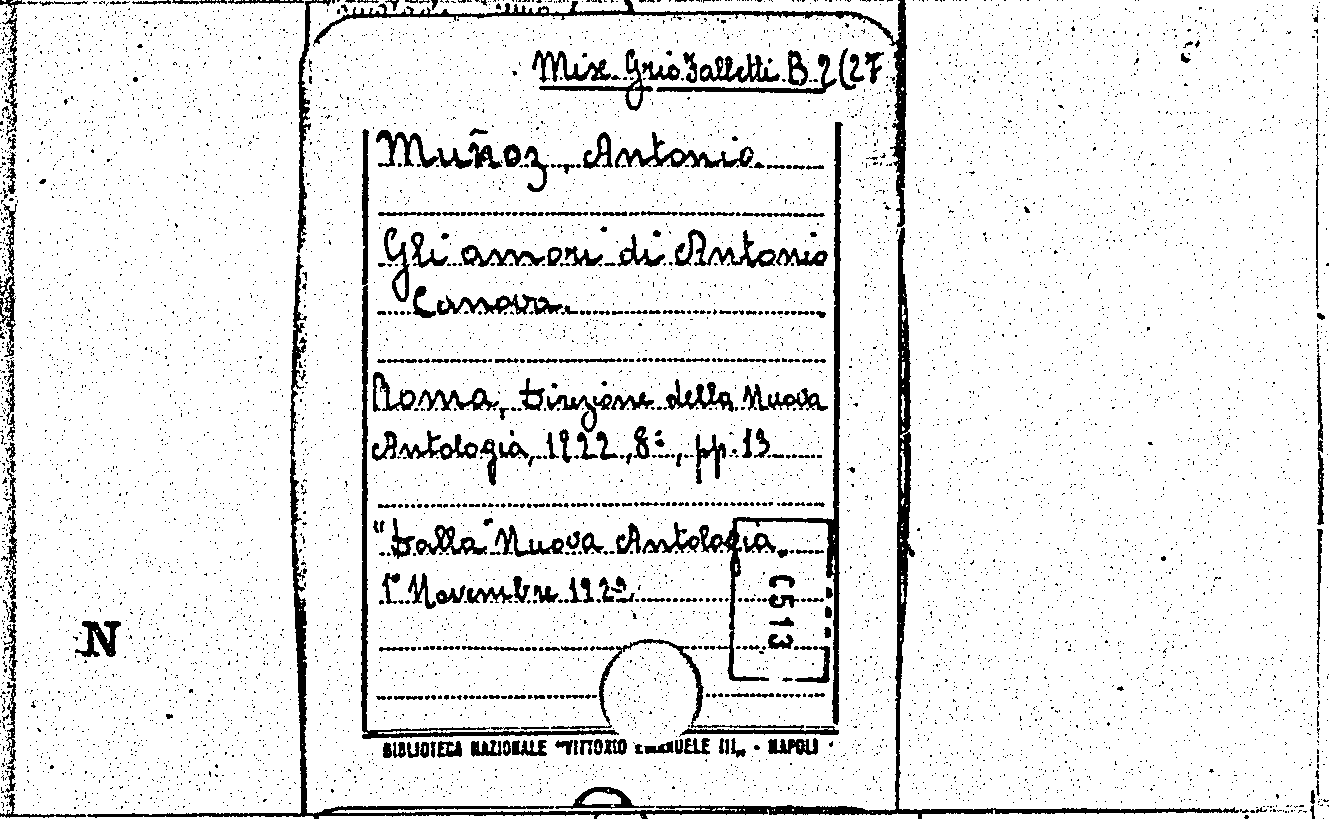 Misc. Grio Falletti B 2(27
Muñoz, Antonio
Gli amori di Antonio
Canova.
Roma, Direzione della Nuova
Antologia, 1922, 8°, pp. 13
"Dalla" Nuova Antologia,
1° Novembre 1922.
C513
N
BIBLIOTECA NAZIONALE "VITTORIO EMANUELE III„ - NAPOLI